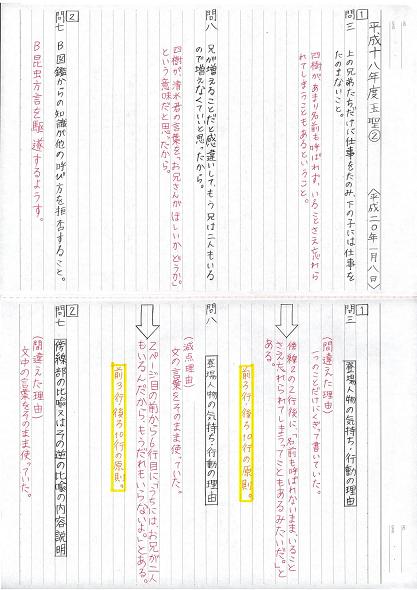 平成十八年度玉聖②
〈平成二〇年一月八日〉
1
問三
上の兄弟たちだけに仕事をたのみ、下の子には仕事を
たのまないこと。
四樹が、あまり名前も呼ばれず、いることさえ忘れら
れてしまうこともあるということ。
問八
兄が増えることだと感違いして、もう兄は二人もいる
ので増えなくていいと思ったから。
四樹が、清水君の言葉を、「お兄さんがほしいかどうか」
という意味だと思ったから。
2
問七
B図鑑からの知識が他の呼び方を拒否すること。
B昆虫方言を駆逐するようす。
1
問三
登場人物の気持ち・行動の理由
(間違えた理由)
一つのことだけにくぎって書いていた。
傍線2の2行後に、「名前も呼ばれないまま、いること
さえ忘れられてしまうってこともあるみたいだ。」と
ある。
前3行・後ろ10行の原則。
問八
登場人物の気持ち・行動の理由
(減点理由)
文の言葉をそのまま使っていた。
2ページ目の前から6行目に、「うちには、お兄が二人
もいるんだから、もうだれもいらないよ。」とある。
前3行・後ろ10行の原則。
2
問七
傍線部の比喩又はその逆の比喩の内容説明
(間違えた理由)
文中の言葉をそのまま使っていた。